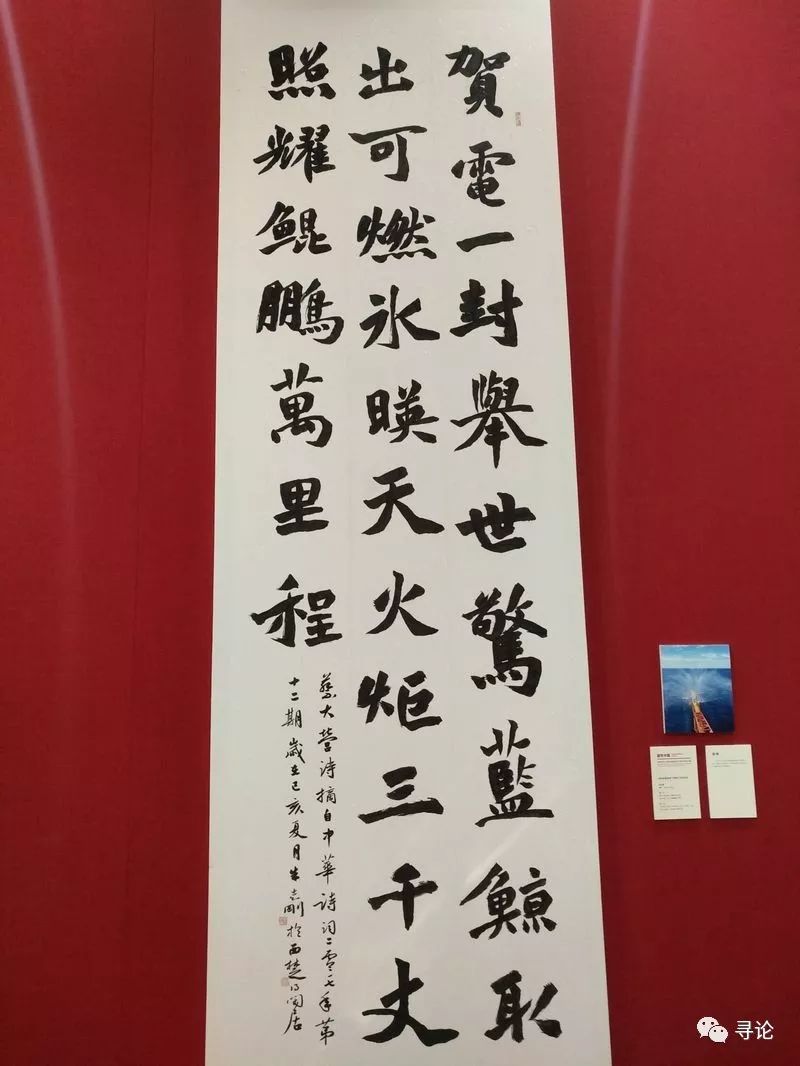 賀電一封舉世驚藍鯨取
出可燃氷暎天火炬三千丈
照耀鲲鵬萬里程
蔡大營诗摘自中華詩词二零一七年第
十二期歲在己亥夏月朱志剛於西楚閒居
寻论